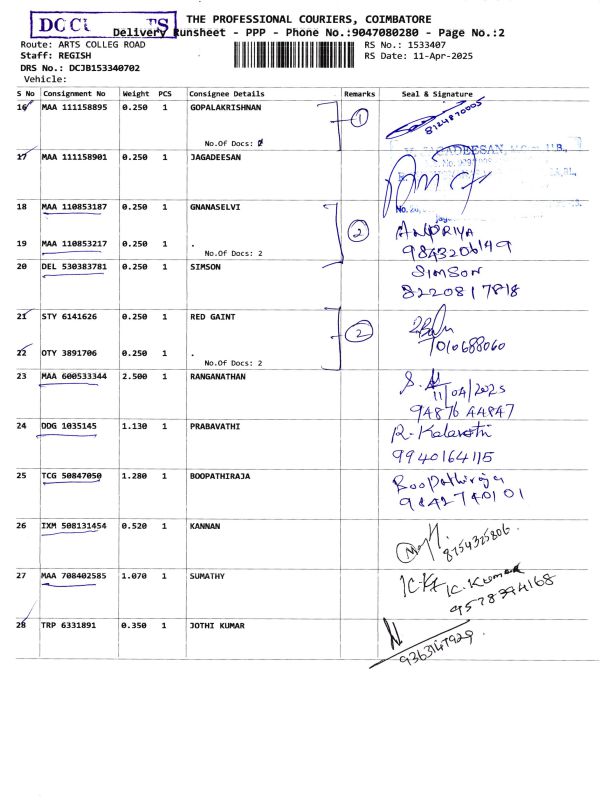 THE PROFESSIONAL COURIERS, COIMBATORE
Delivery Runsheet - PPP - Phone No.:9047080280 - Page No.:2
Route: ARTS COLLEG ROAD
RS No.: 1533407
Staff: REGISH
RS Date: 11-Apr-2025
DRS No.: DCJB153340702
Vehicle:
S No Consignment No Weight PCS Consignee Details Remarks Seal & Signature
16 MAA 111158895 0.250 1 GOPALAKRISHNAN 1
8124870005
No.Of Docs:
17 MAA 111158901 0.250 1 JAGADEESAN
18 MAA 110853187 0.250 1 GNANASELVI 2
19 MAA 110853217 0.250 1 .
9843206149
No.Of Docs: 2
20 DEL 530383781 0.250 1 SIMSON
SIMSON
8220817818
21 STY 6141626 0.250 1 RED GAINT 2
22 OTY 3891706 0.250 1 .
7010688060
No.Of Docs: 2
23 MAA 600533344 2.500 1 RANGANATHAN
11/04/2025
9487644847
24 DDG 1035145 1.130 1 PRABAVATHI
9940164115
25 TCG 50847050 1.280 1 BOOPATHIRAJA
Boopathiraja
9842740101
26 IXM 508131454 0.520 1 KANNAN
8754325806
27 MAA 708402585 1.070 1 SUMATHY
K. Kumar
9578394168
28 TRP 6331891 0.350 1 JOTHI KUMAR
9363147929